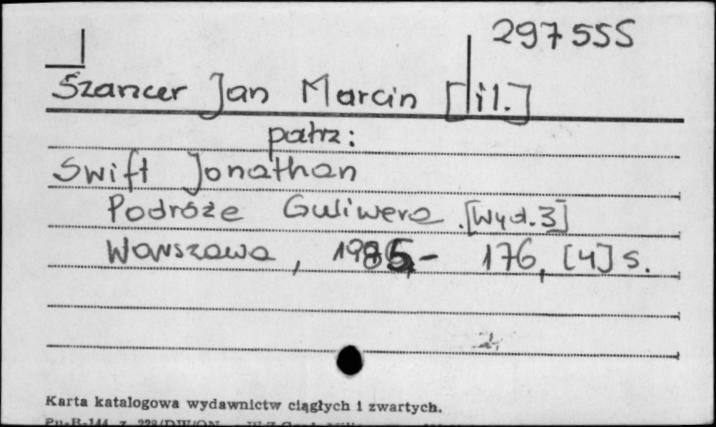 297555
Szancer Jan Marcin [il.]
patrz:
Swift Jonathan
Podróże Guliwera. [Wyd. 3]
Warszawa, 1985,- 176, [4] s.
Karta katalogowa wydawnictw ciągłych i zwartych.
Pu-B-144